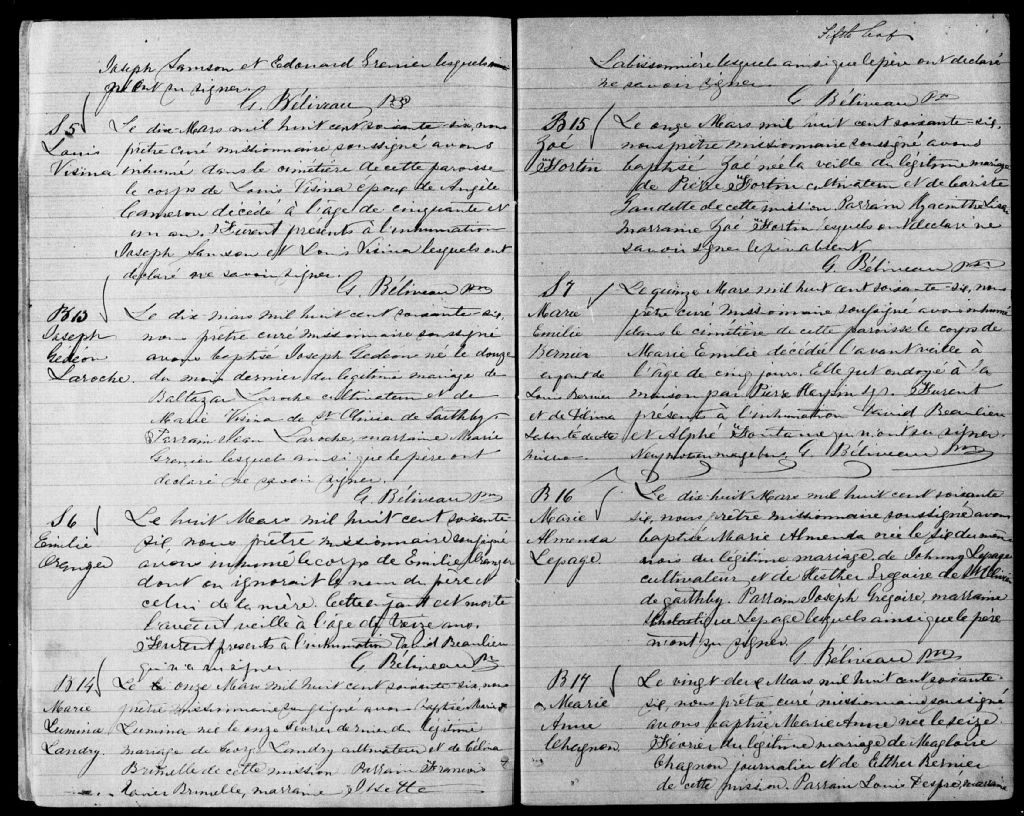 Joseph Samson et Edouard Grenier lesquels
n'ont su signer.
G. Béliveau Ptre
S 5
Louis
Visina
Le dix Mars mil huit cent soixante-six, nous
prêtre curé missionnaire soussigné avons
inhumé dans le cimetière de cette paroisse
le corps de Louis Visina époux de Angèle
Cameron décédé à l'âge de cinquante et
un an. Furent présents à l'inhumation
Joseph Samson et Louis Visina lesquels ont
declaré ne savoir signer.
G. Béliveau Ptre
B 13
Joseph
Gédéon
Laroche.
Le dix mars mil huit cent soixante-six,
nous prêtre curé missionnaire soussigné
avons baptisé Joseph Gedeon né le douze
du mois dernier du legitime mariage de
Baltazar Laroche cultivateur et de
Marie Visina de St Olivier de Garthby
Parrain Jean Laroche, marraine Marie
Grenier lesquels ainsi que le père ont
declaré ne savoir signer.
G. Béliveau Ptre
S 6
Emilie
Oranger
Le huit Mars mil huit cent soixante-
six, nous prêtre missionnaire soussigné
avons inhumé le corps de Emilie Oranger
dont on ignorait le nom du père et
celui de la mère. Cette enfant est morte
l'avant veille à l'âge de treize ans.
Furent presents à l'inhumation David Beaulieu
qui n'a su signer.
G. Béliveau Ptre
B 14
Marie
Lumina
Landry.
Le onze Mars mil huit cent soixante-six, nous
prêtre missionnaire soussigné avons baptisé Marie
Lumina née le onze Fevrier dernier du légitime
mariage de George Landry cultivateur et de Célina
Brunelle de cette mission Parrain Francois
Xavier Brunelle, marraine Josette
Fifth leaf
Labissonnière lesquels ainsi que le père ont declaré
ne savoir signer.
G. Béliveau Ptre
B 15
Zoé
Fortin
Le onze Mars mil huit cent soixante-six,
nous prêtre missionnaire soussigné avons
baptisé Zoé née la veille du légitime mariage
de Pierre Fortin cultivateur et de
Gaudette de cette mission Parrain Hyacinthe
marraine Zoé Fortin lesquels ont declaré ne
savoir signer le père absent.
G. Béliveau Ptre
S 7
Marie
Emilie
Bernier
enfant de
Louis Bernier
et de
Laberté de cette
mission
Le quinze Mars mil huit cent soixante-six, nous
prêtre curé missionnaire soussigné avons inhumé
dans le cimetière de cette paroisse le corps de
Marie Emilie décédée l'avant veille à
l'âge de cinq jours. Elle fut ondoyé à la
maison par Pierre Furent
présents à l'inhumation David Beaulieu
et Alphé Fontaine qui n'ont su signer.
Neuf mots en marge bons. G. Béliveau Ptre
B 16
Marie
Almenda
Lepage
Le dix huit Mars mil huit cent soixante
six, nous prêtre missionnaire soussigné avons
baptisé Marie Almenda née le six du même
mois du légitime mariage de Johnny Lepage
cultivateur et de Hesther Grégoire de St Olivier
de Garthby. Parrain Joseph Grégoire, marraine
Scholastique Lepage lesquels ainsi que le père
n'ont su signer.
G. Béliveau Ptre
B 17
Marie
Anne
Chagnon
Le vingt deux Mars mil huit cent soixante-
six, nous prêtre curé missionnaire soussigné
avons baptisé Marie Anne née le seize
Février du légitime mariage de Magloire
Chagnon journalier et de Esther Bernier
de cette mission. Parrain Louis Despré, marraine